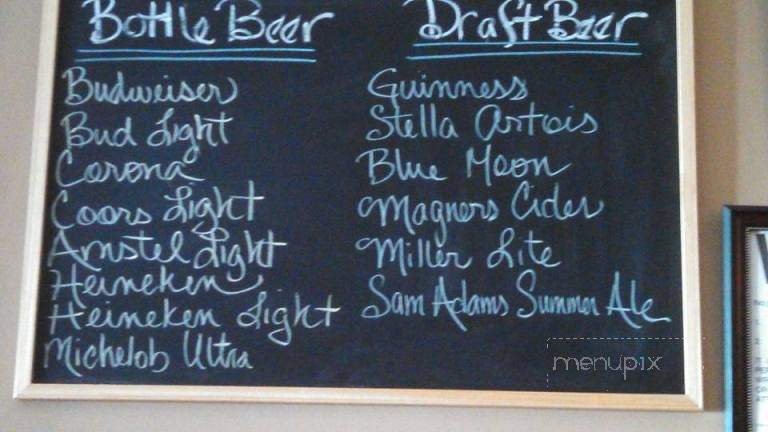 Bottle Beer
Budweiser
Bud Light
Corona
Coors Light
Amstel Light
Heineken
Heineken Light
Michelob Ultra
Draft Beer
Guinness
Stella Artois
Blue Moon
Magners Cider
Miller Lite
Sam Adams Summer Ale
menupix